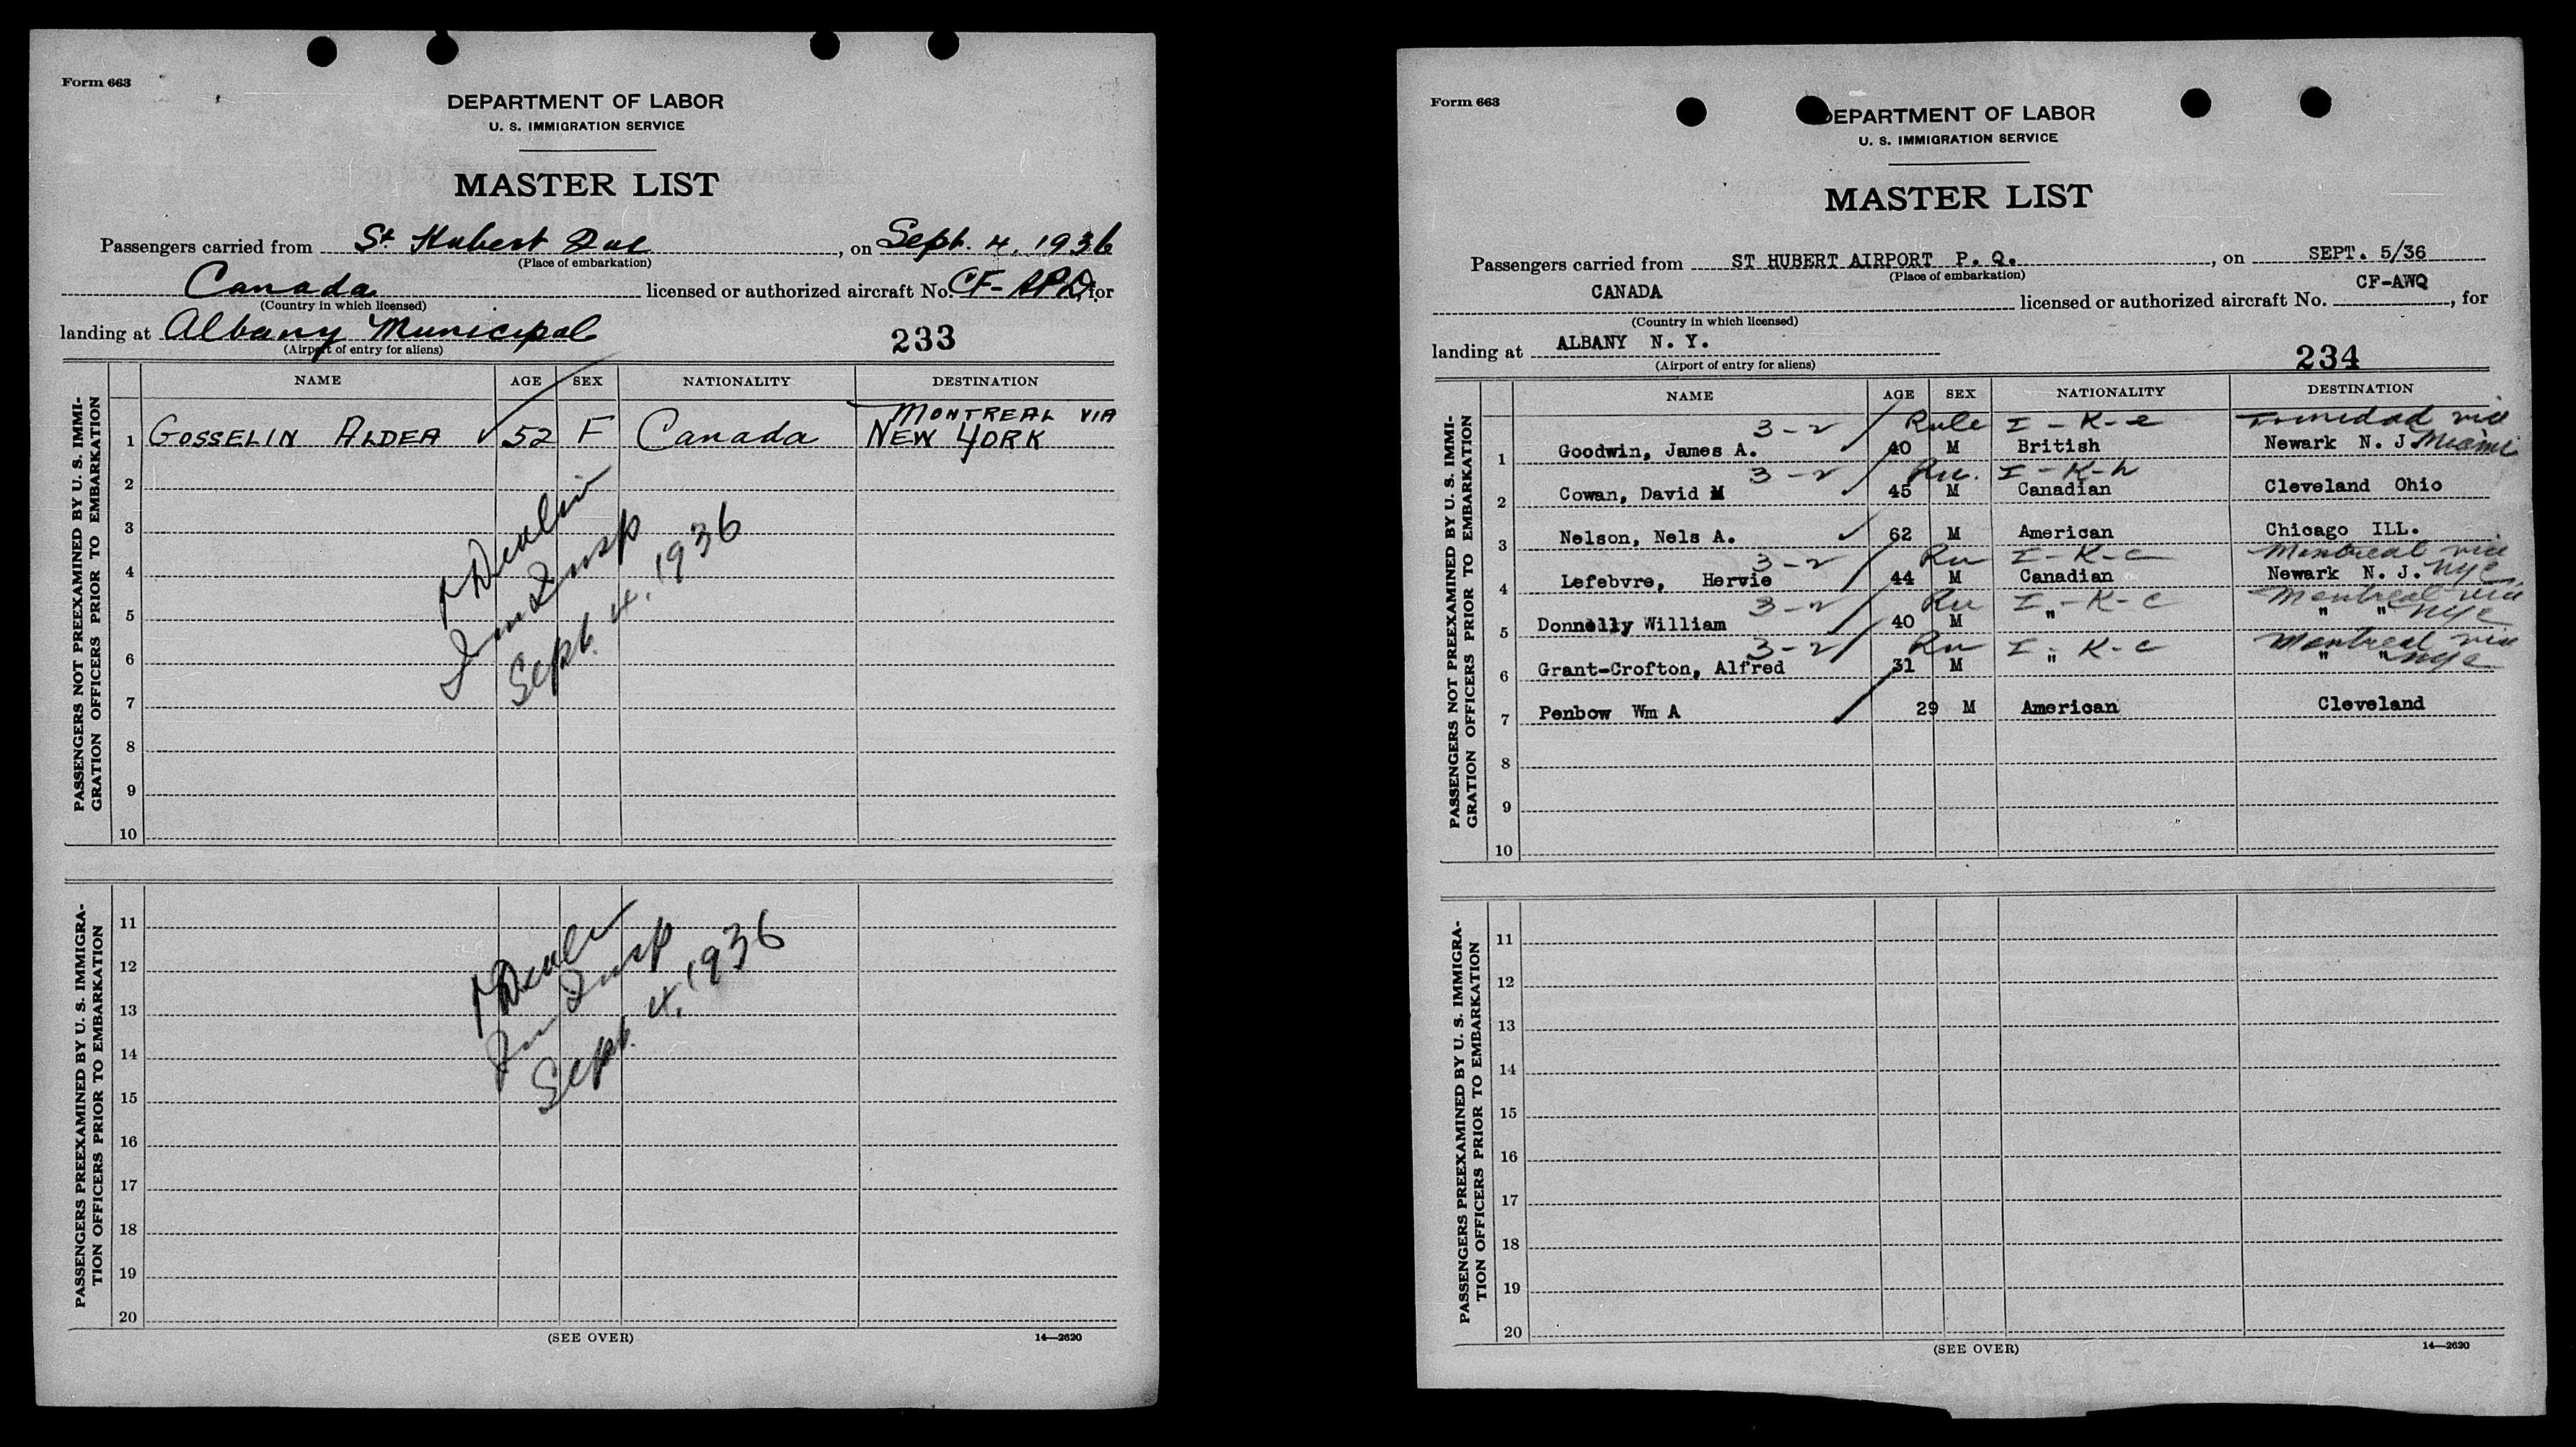 Form 663
DEPARTMENT OF LABOR
U. S. IMMIGRATION SERVICE
MASTER LIST
Passengers carried from St Hubert Que, on Sept. 4, 1936
(Place of embarkation)
Canada licensed or authorized aircraft No. CF-APD, for
(Country in which licensed)
landing at Albany Municipal 233
(Airport of entry for aliens)
NAME AGE SEX NATIONALITY DESTINATION
PASSENGERS NOT PREEXAMINED BY U. S. IMMI-
GRATION OFFICERS PRIOR TO EMBARKATION
MONTREAL VIA
1 GOSSELIN ALDEA 52 F Canada NEW YORK
2
3
4
5
6
7
8
9
10
Imm Insp
Sept. 4, 1936
PASSENGERS PREEXAMINED BY U. S. IMMIGRA-
TION OFFICERS PRIOR TO EMBARKATION
11
12
13
14
15
16
17
18
19
20
Imm Insp
Sept. 4, 1936
(SEE OVER) 14—2620
Form 663
DEPARTMENT OF LABOR
U. S. IMMIGRATION SERVICE
MASTER LIST
Passengers carried from ST HUBERT AIRPORT P. Q., on SEPT. 5/36
(Place of embarkation)
CANADA licensed or authorized aircraft No. CF-AWQ, for
(Country in which licensed)
landing at ALBANY N. Y.
(Airport of entry for aliens) 234
NAME AGE SEX NATIONALITY DESTINATION
PASSENGERS NOT PREEXAMINED BY U. S. IMMI-
GRATION OFFICERS PRIOR TO EMBARKATION
3-2 Rule I-K-e Trinidad via
1 Goodwin, James A. 40 M British Newark N. J. Miami
3-2 Ru. I-K-h
2 Cowan, David M 45 M Canadian Cleveland Ohio
3 Nelson, Nels A. 62 M American Chicago ILL.
3-2 Ru I-K-c Montreal via
4 Lefebvre, Hervie 44 M Canadian Newark N. J. NYC
3-2 Ru I-K-c Montreal via
5 Donnelly William 40 M " " " NYC
3-2 Ru I-K-c Montreal via
6 Grant-Crofton, Alfred 31 M " " " NYC
7 Penbow Wm A 29 M American Cleveland
8
9
10
PASSENGERS PREEXAMINED BY U. S. IMMIGRA-
TION OFFICERS PRIOR TO EMBARKATION
11
12
13
14
15
16
17
18
19
20
(SEE OVER) 14—2620